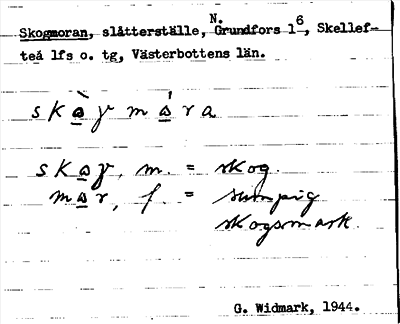 Skogmoran, slåtterställe, N. Grundfors 1⁶, Skellef-
teå lfs o. tg, Västerbottens län.
skàɣ mára
skaɣ, m. = skog.
mar, f. = sumpig
skogsmark.
G. Widmark, 1944.